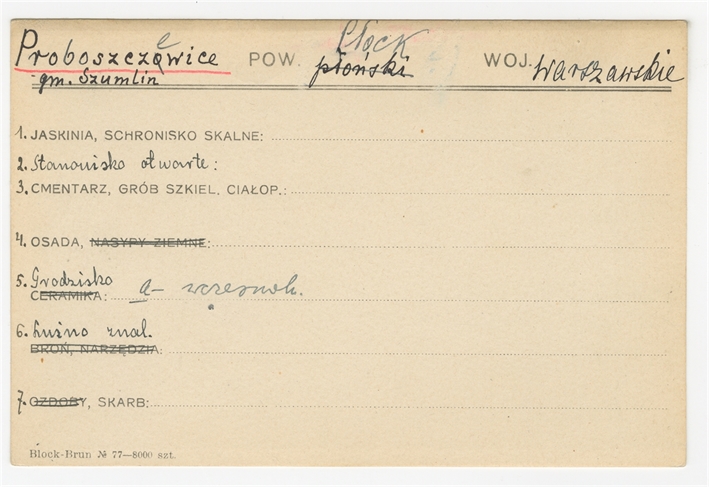 Proboszczewice POW. Płock płoński WOJ. Warszawskie
gm. Szumlin
1. JASKINIA, SCHRONISKO SKALNE:
2. Stanowisko otwarte:
3. CMENTARZ, GRÓB SZKIEL. CIAŁOP.:
4. OSADA, NASYPY ZIEMNE:
5. Grodzisko
CERAMIKA: a – wczesnoh.
6. Luźno znal.
BROŃ, NARZĘDZIA:
7. OZDOBY, SKARB:
Block-Brun № 77—8000 szt.